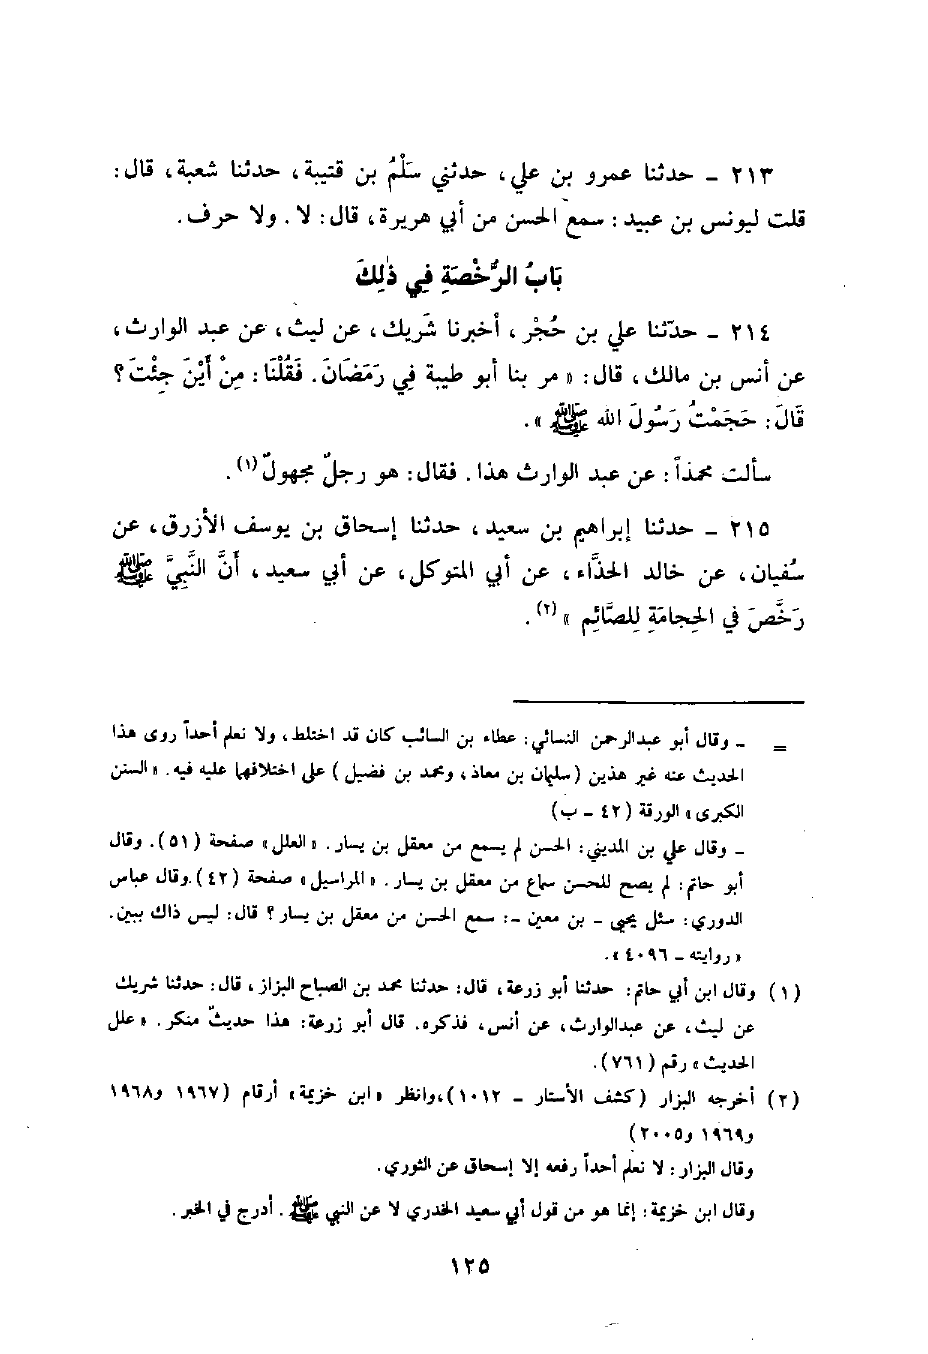 ٢١٣ ـ حدثنا عمرو بن علي، حدثني سَلْمُ بن قتيبة، حدثنا شعبة، قال:
قلت ليونس بن عبيد: سمع الحسن من أبي هريرة، قال: لا. ولا حرف.
بَابُ الرُّخْصَةِ فِي ذٰلِكَ
٢١٤ ـ حدّثنا علي بن حُجْر، أخبرنا شَريك، عن ليث، عن عبد الوارث،
عن أنس بن مالك، قال: « مر بنا أبو طيبة فِي رَمَضَانَ. فَقُلْنَا: مِنْ أَيْنَ جِئْتَ؟
قَالَ: حَجَمْتُ رَسُولَ الله ﷺ ».
سألت محمداً: عن عبد الوارث هذا. فقال: هو رجلٌ مجهولٌ(١).
٢١٥ ـ حدثنا إبراهيم بن سعيد، حدثنا إسحاق بن يوسف الأزرق، عن
سُفيان، عن خالد الحذَّاء، عن أبي المتوكل، عن أبي سعيد، أَنَّ النَّبِيَّ ﷺ
رَخَّصَ في الحِجامَةِ لِلصَّائِم »(٢).
= ـ وقال أبو عبدالرحمن النسائي: عطاء بن السائب كان قد اختلط، ولا نعلم أحداً روى هذا
الحديث عنه غير هذين (سليمان بن معاذ، ومحمد بن فضيل) على اختلافهما عليه فيه. « السنن
الكبرى » الورقة (٤٢ ـ ب)
ـ وقال علي بن المديني: الحسن لم يسمع من معقل بن يسار. « العلل » صفحة (٥١). وقال
أبو حاتم: لم يصح للحسن سماع من معقل بن يسار. « المراسيل » صفحة (٤٢).وقال عباس
الدوري: سئل يحيى ـ بن معين ـ: سمع الحسن من معقل بن يسار؟ قال: ليس ذاك ببين.
« روايته ـ ٤٠٩٦ ».
(١) وقال ابن أبي حاتم: حدثنا أبو زرعة، قال: حدثنا محمد بن الصباح البزاز، قال: حدثنا شريك
عن ليث، عن عبدالوارث، عن أنس، فذكره. قال أبو زرعة: هذا حديثٌ منكر. « علل
الحديث » رقم (٧٦١).
(٢) أخرجه البزار (كشف الأستار ـ ١٠١٢)،وانظر « ابن خزيمة » أرقام (١٩٦٧ و١٩٦٨
و١٩٦٩ و٢٠٠٥)
وقال البزار: لا نعلم أحداً رفعه إلا إسحاق عن الثوري.
وقال ابن خزيمة: إنما هو من قول أبي سعيد الخدري لا عن النبي ﷺ. أدرج في الخبر.
١٢٥